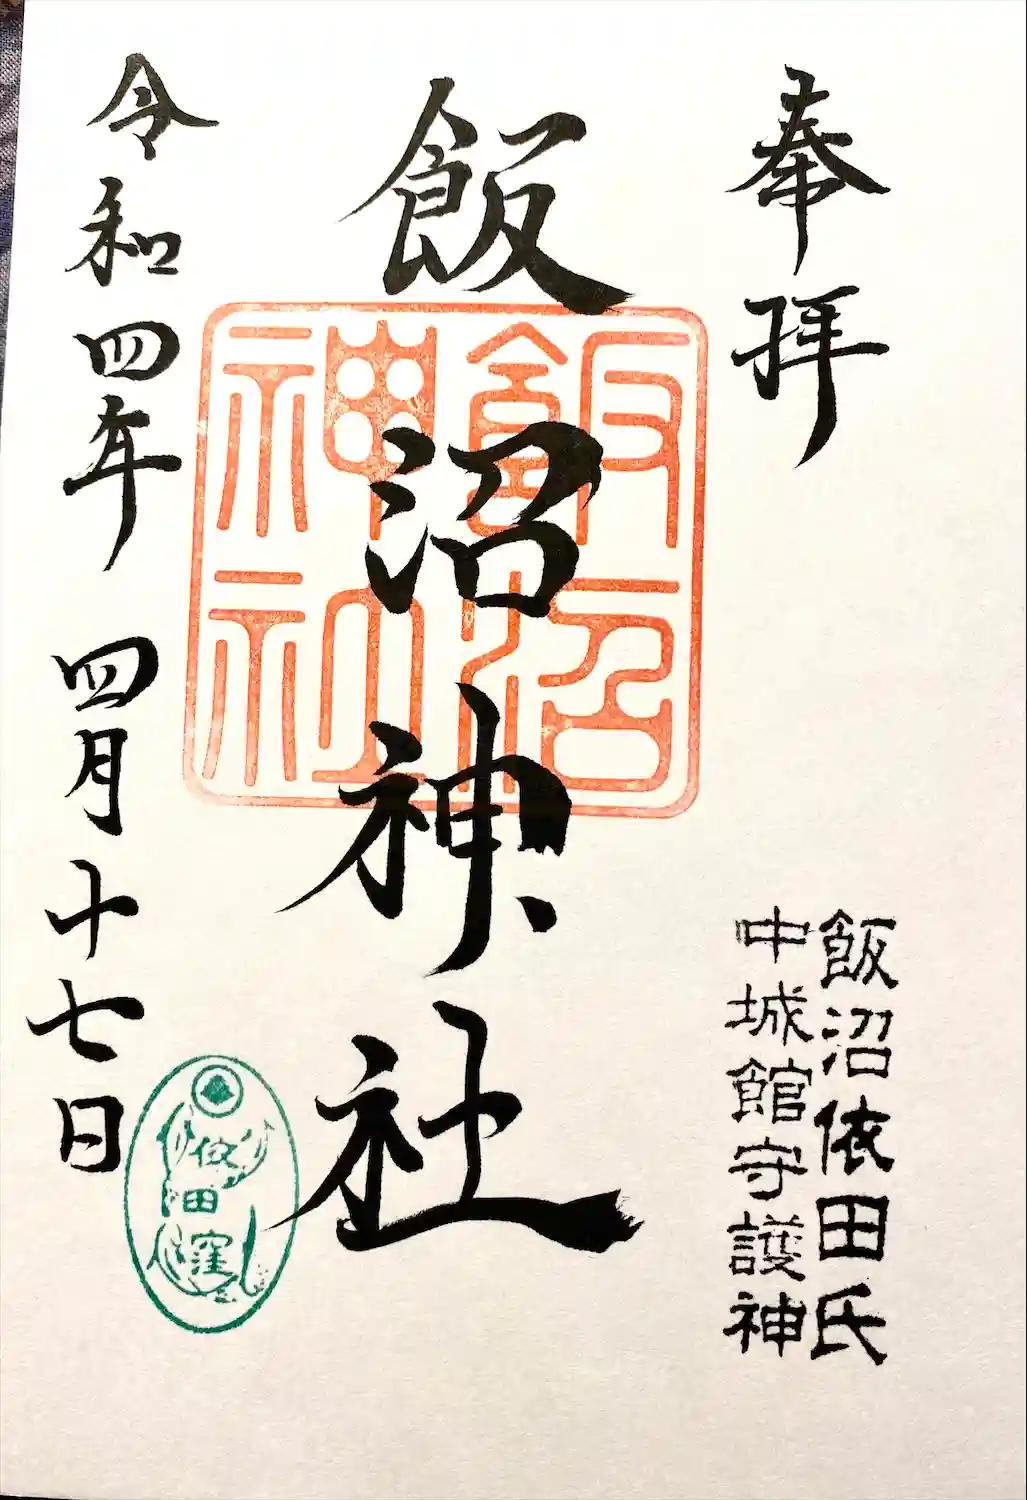 奉拝
飯沼依田氏
中城館守護神
飯沼神社
飯沼
神社
令和四年 四月十七日
依田窪